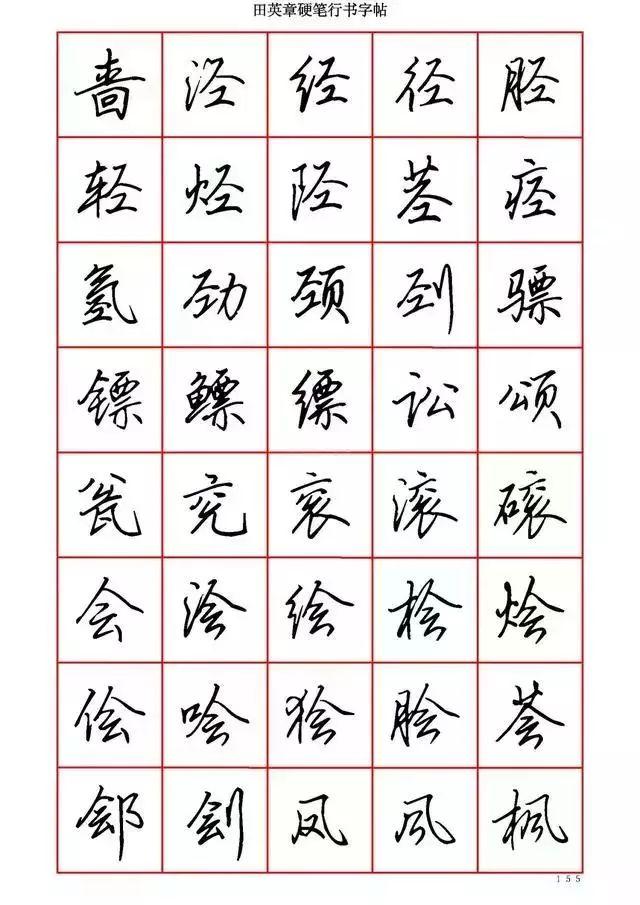 田英章硬笔行书字帖
啬 泾 经 径 胫
轻 烃 陉 茎 痉
氢 劲 颈 刭 骠
镖 鳔 缥 讼 颂
瓮 兖 衮 滚 磙
会 浍 绘 桧 烩
侩 哙 狯 脍 荟
郐 刽 凤 风 枫
155